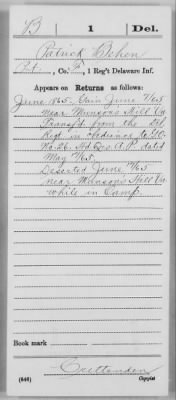 B | 1 | Del.
Patrick Behen
Pvt., Co. F, 1 Reg't Delaware Inf.
Appears on Returns as follows:
June 1865. Gain June 7/65
near Munsons Hill Va
Transf'd from the 2d
Regt in obedience S.O.
No 26. Hd Qrs A.P. dated
May 7/65.
Deserted June 7/65
near Munsons Hill Va
while in Camp.
Book mark
Crittenden
(646) Copyist